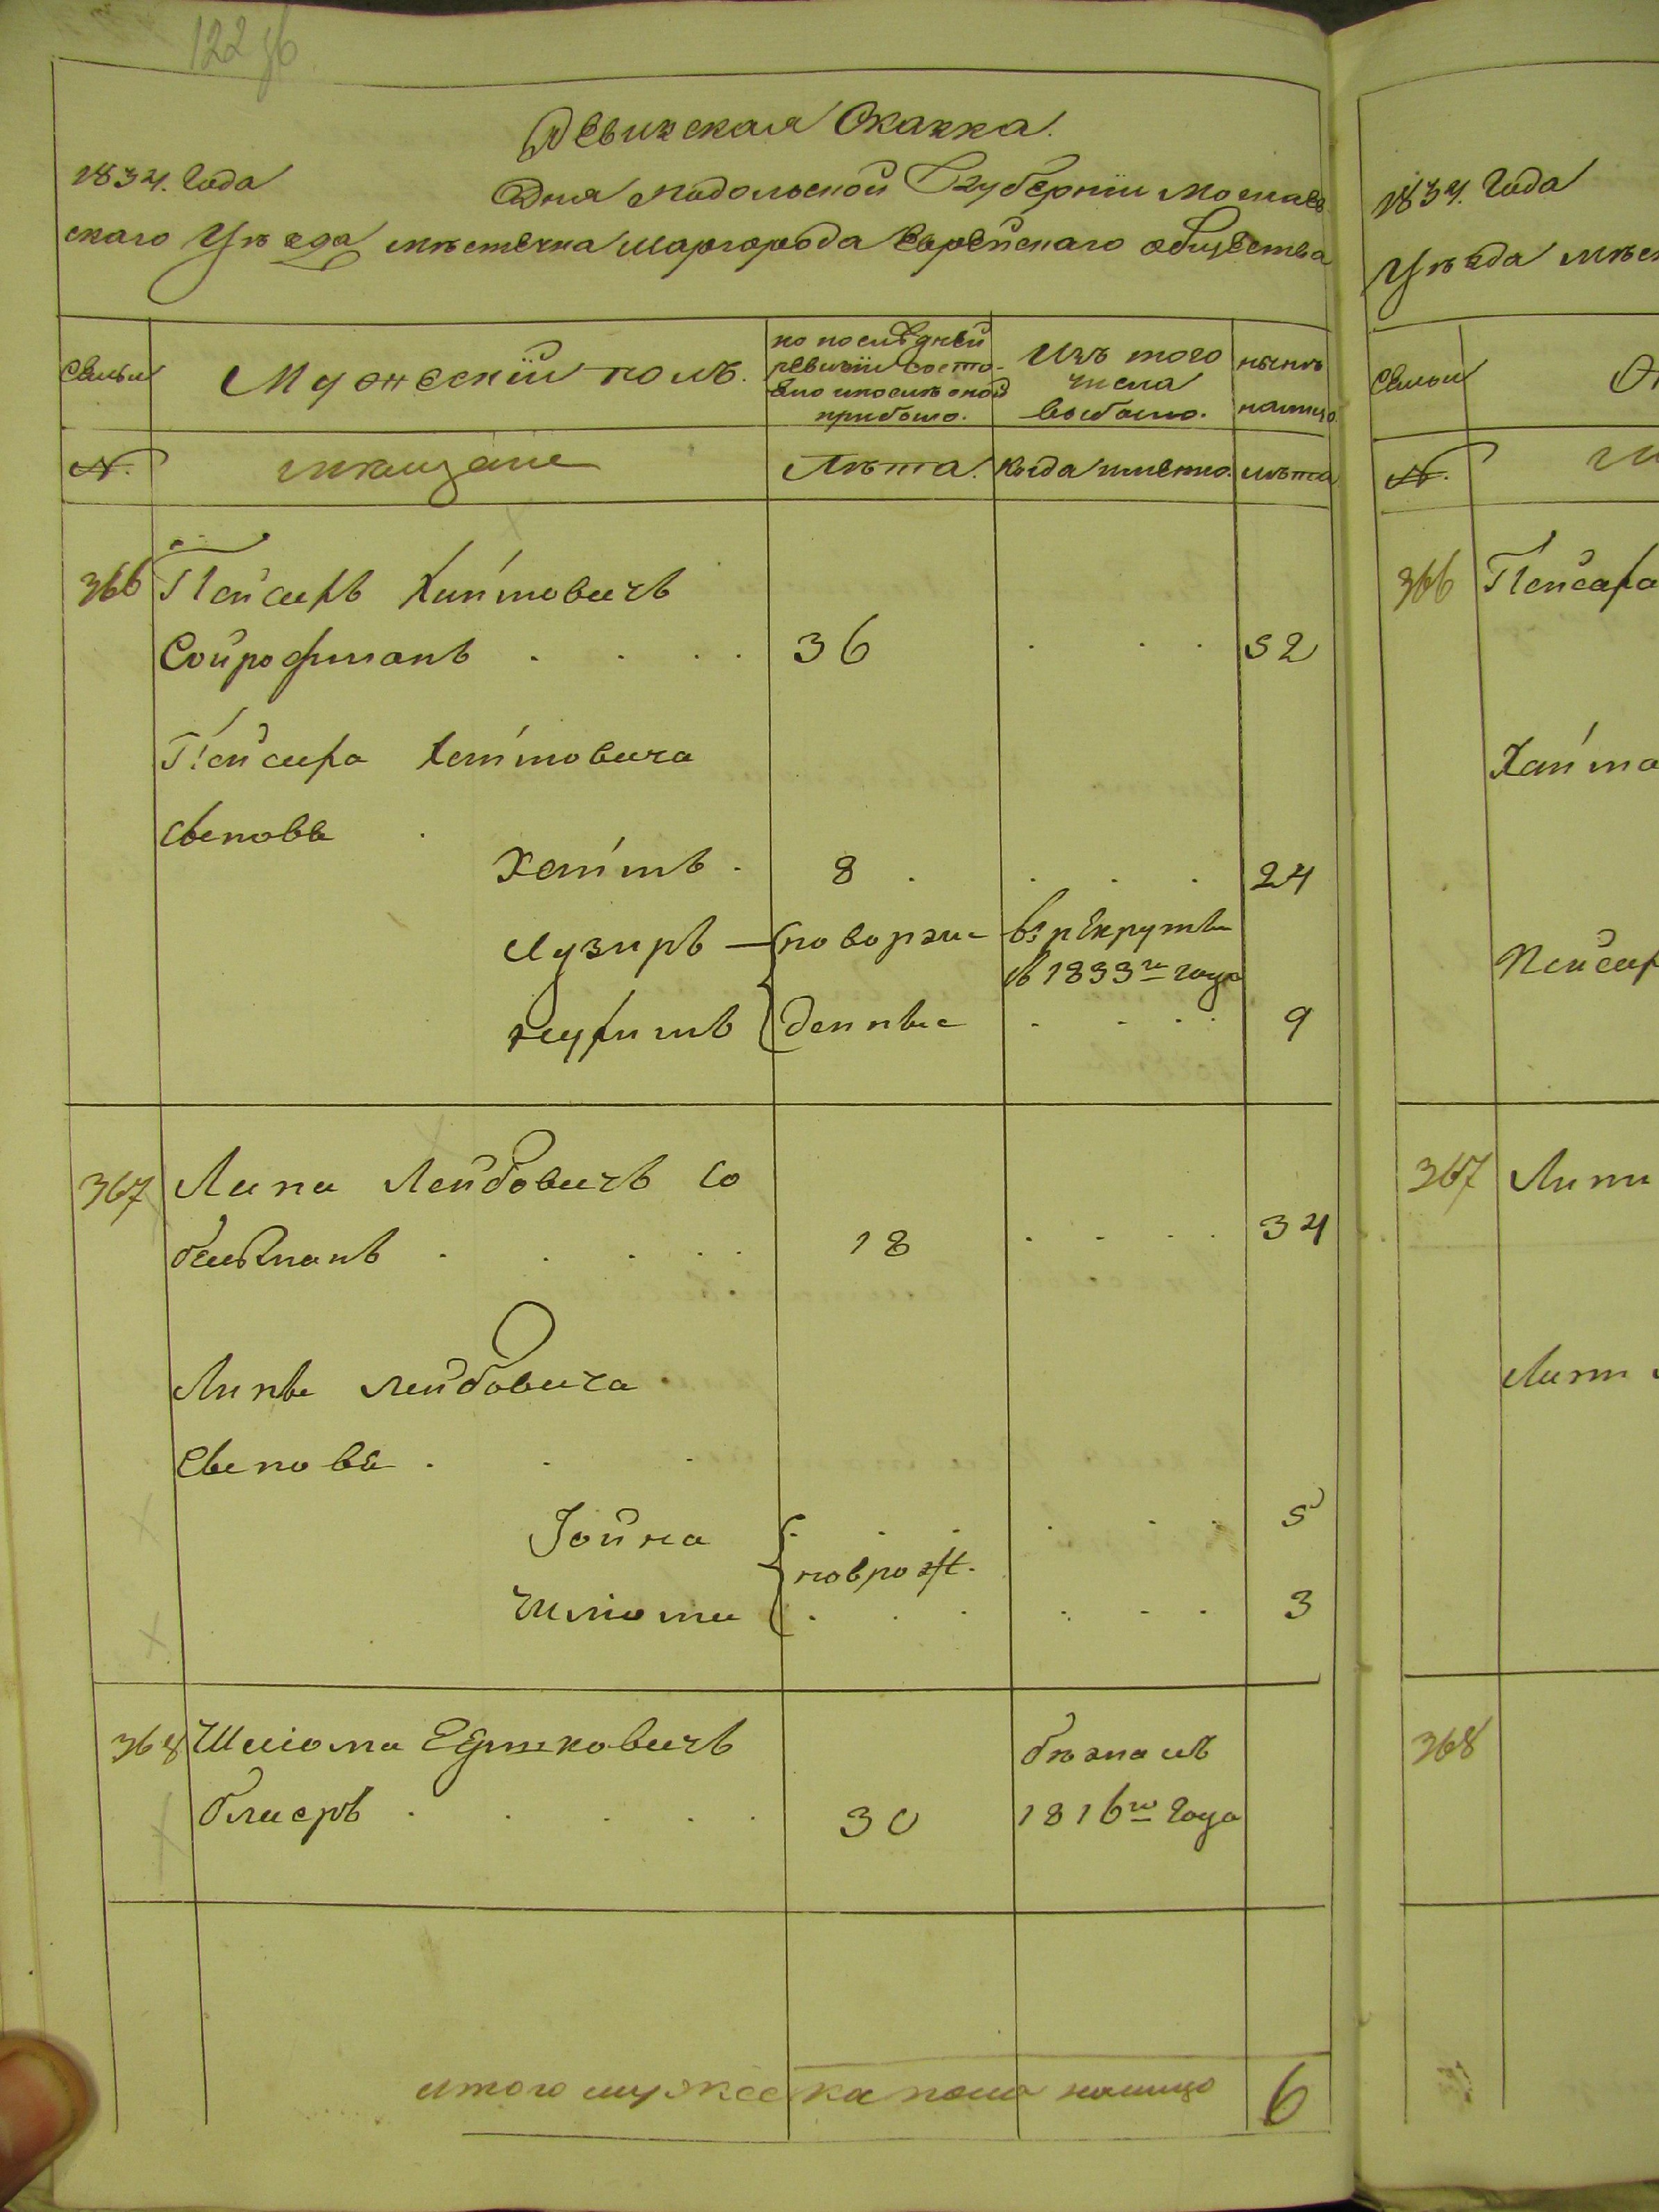 122 об.
Ревизская Сказка.
1834. Года
Дня Подольской Губернии Могилев
скаго Уѣзда мѣстечка Шаргорода Еврейскаго общества
Семьи
Мужескій полъ.
по послѣдней
ревизіи состо-
яло и послѣ оной
прибыло.
Изъ того
числа
выбыло.
нынѣ
налицо
№.
мѣщане
Лѣта.
Когда именно.
лѣта
366
Пейсахъ Хаимовичъ
Сойрофманъ . . . .
36
52
Пейсаха Хаимовича
сыновья
Хаимъ .
8
24
Лузиръ
новорж
въ рекруты
въ 1833го года
Нухимъ
денные
9
367
Липа Лейбовичъ Со
бельманъ . . . .
18
34
Липы Лейбовича
Сыновья . . .
Іойна
5
новрож.
Шліома
3
368
Шліома Ершковичъ
бѣжалъ
30
1816го Года
итого мужеска пола налицо
6
1834. Года
Уѣзда мѣс
Семьи
№.
366
Пейсаха
Хаима
Пейсах
367
Липи
Липи
368